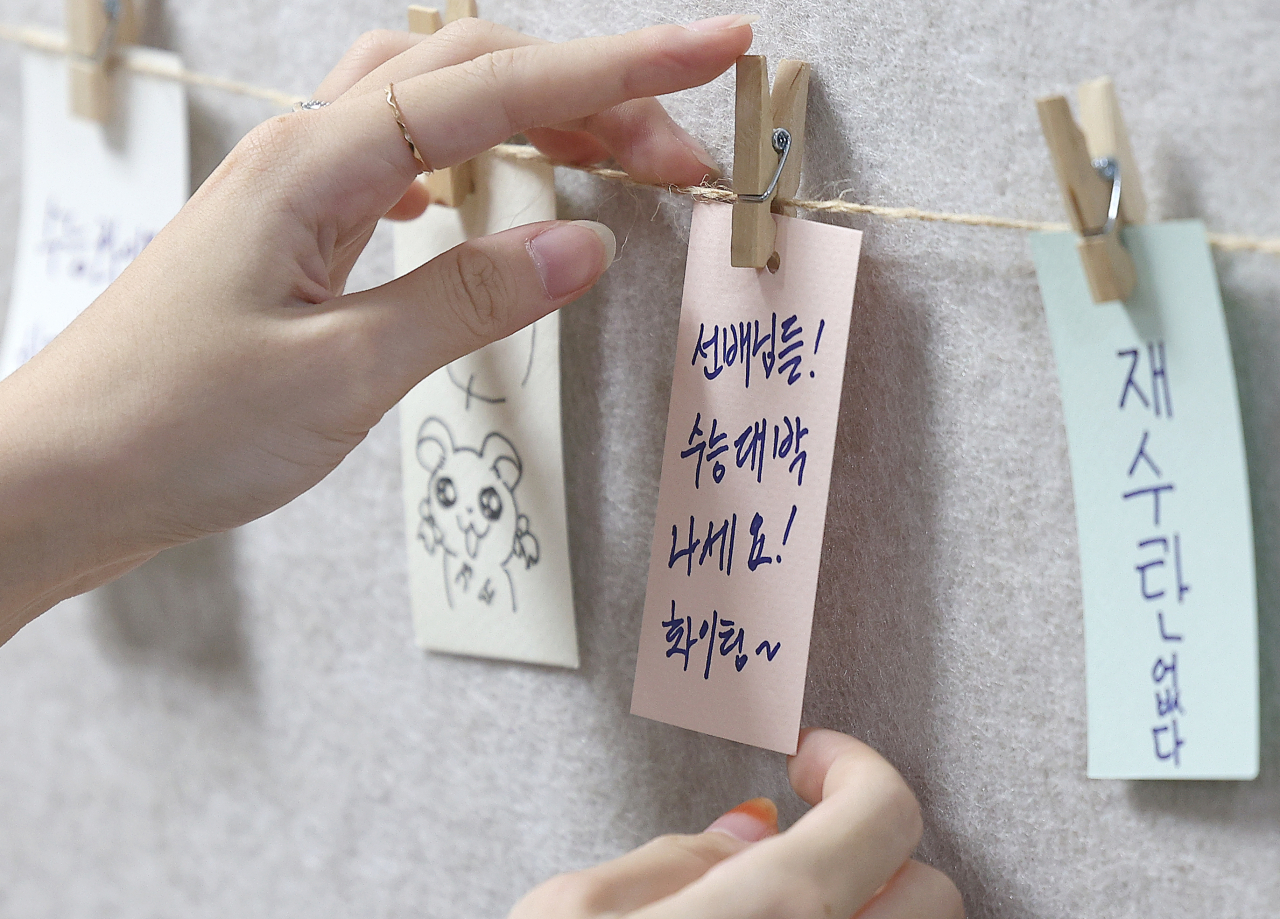 수능
선배님들!
수능대박
나세요!
화이팅~
재
수
란
없
다